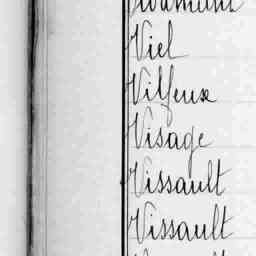 Viel
Vilfeux
Visage
Vissault
Vissault